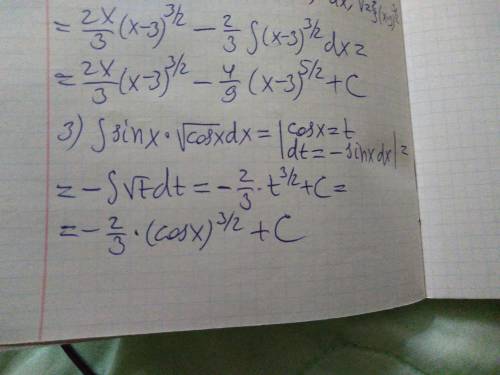 = 2x/3 (x-3)^3/2 - 2/3 ∫(x-3)^3/2 dx =
= 2x/3 (x-3)^3/2 - 4/9 (x-3)^5/2 + C
3) ∫ sinx · √cosx dx = | cosx = t
dt = - sinx dx | =
= - ∫√t dt = - 2/3 · t^3/2 + C =
= - 2/3 · (cosx)^3/2 + C